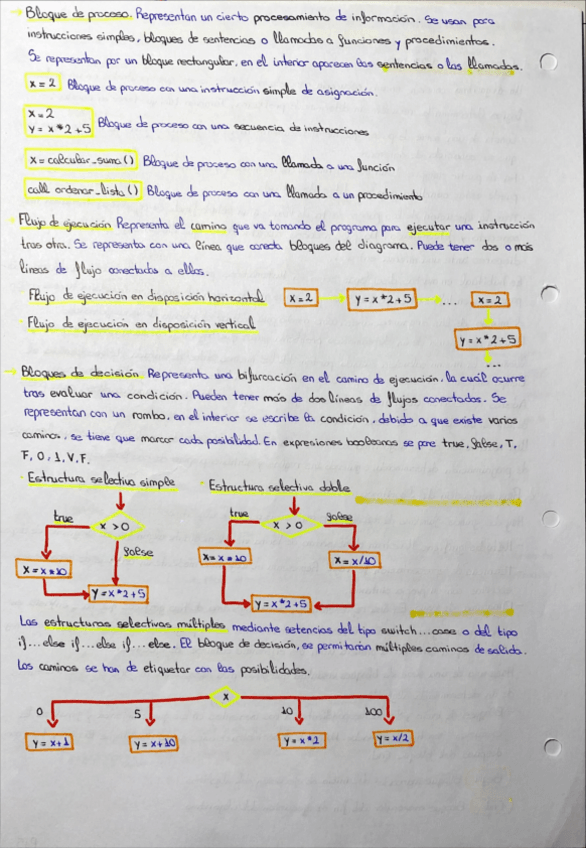 → Bloque de proceso. Representan un cierto procesamiento de información. Se usan para
instrucciones simples, bloques de sentencias o llamadas a funciones y procedimientos.
Se representan por un bloque rectangular, en el interior aparecen las sentencias o las llamadas.
x = 2 Bloque de proceso con una instrucción simple de asignación.
x = 2
y = x * 2 + 5 Bloque de proceso con una secuencia de instrucciones
x = calcular_suma() Bloque de proceso con una llamada a una función
call ordenar_lista() Bloque de proceso con una llamada a un procedimiento
Flujo de ejecución Representa el camino que va tomando el programa para ejecutar una instrucción
tras otra. Se representa con una línea que conecta bloques del diagrama. Puede tener dos o más
líneas de flujo conectadas a ellos.
· Flujo de ejecución en disposición horizontal x = 2 → y = x * 2 + 5 → ... x = 2
· Flujo de ejecución en disposición vertical
y = x * 2 + 5
...
→ Bloques de decisión. Representa una bifurcación en el camino de ejecución, la cuál ocurre
tras evaluar una condición. Pueden tener más de dos líneas de flujos conectados. Se
representan con un rombo, en el interior se escribe la condición, debido a que existe varios
caminos, se tiene que marcar cada posibilidad. En expresiones booleanas se pone true, false, T,
F, 0, 1, V, F.
· Estructura selectiva simple · Estructura selectiva doble
true x > 0 true x > 0 false
false
x = x * 10 x = x * 10 x = x/10
y = x * 2 + 5 y = x * 2 + 5
Las estructuras selectivas múltiples mediante setencias del tipo switch...case o del tipo
if...else if...else if...else. El bloque de decisión, se permitarán múltiples caminos de salida.
Los caminos se han de etiquetar con las posibilidades.
x
0 5 10 100
y = x + 1 y = x + 10 y = x * 2 y = x/2